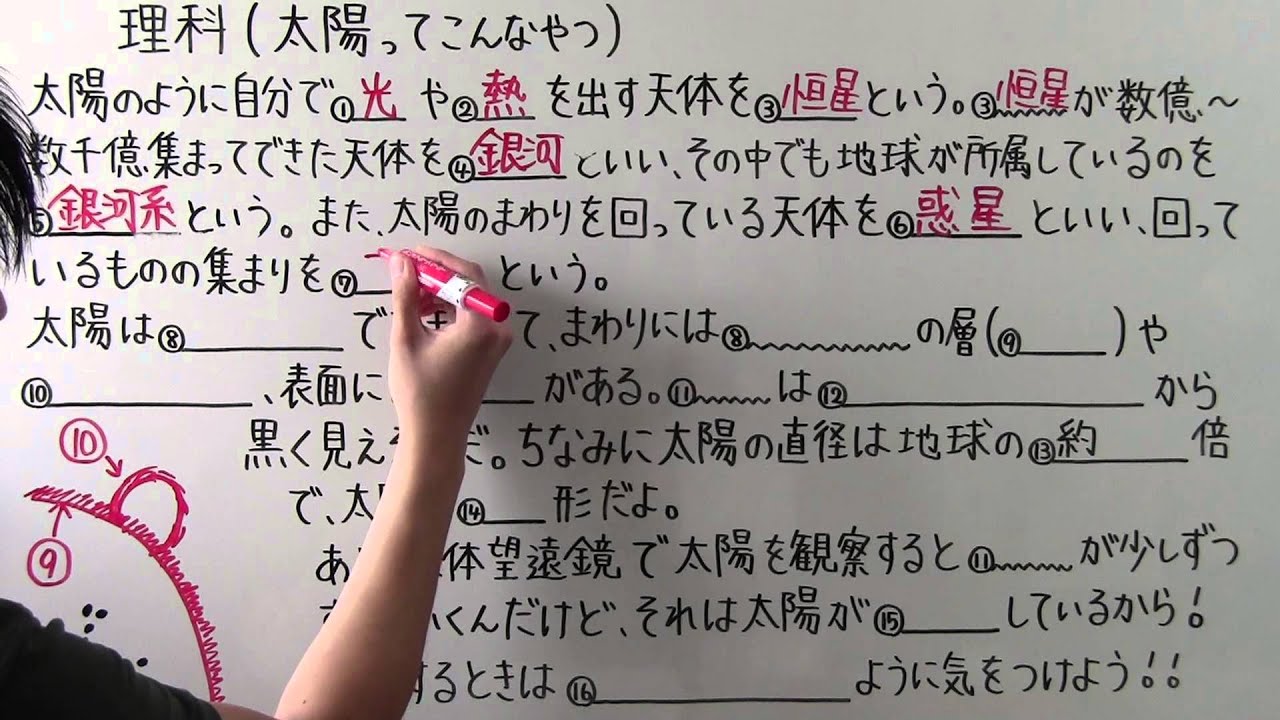 理科(太陽ってこんなやつ)
太陽のように自分で①光や②熱を出す天体を③恒星という。③恒星が数億〜
数千億集まってできた天体を④銀河といい、その中でも地球が所属しているのを
⑤銀河系という。また、太陽のまわりを回っている天体を⑥惑星といい、回って
いるものの集まりを⑦という。
太陽は⑧で て、まわりには⑧の層(⑨)や
⑩、表面に がある。⑪は⑫から
黒く見え だ。ちなみに太陽の直径は地球の⑬約 倍
で、太 ⑭形だよ。
あ 体望遠鏡で太陽を観察すると⑪が少しずつ
くんだけど、それは太陽が⑮しているから!
するときは⑯ように気をつけよう!!
⑩
⑨